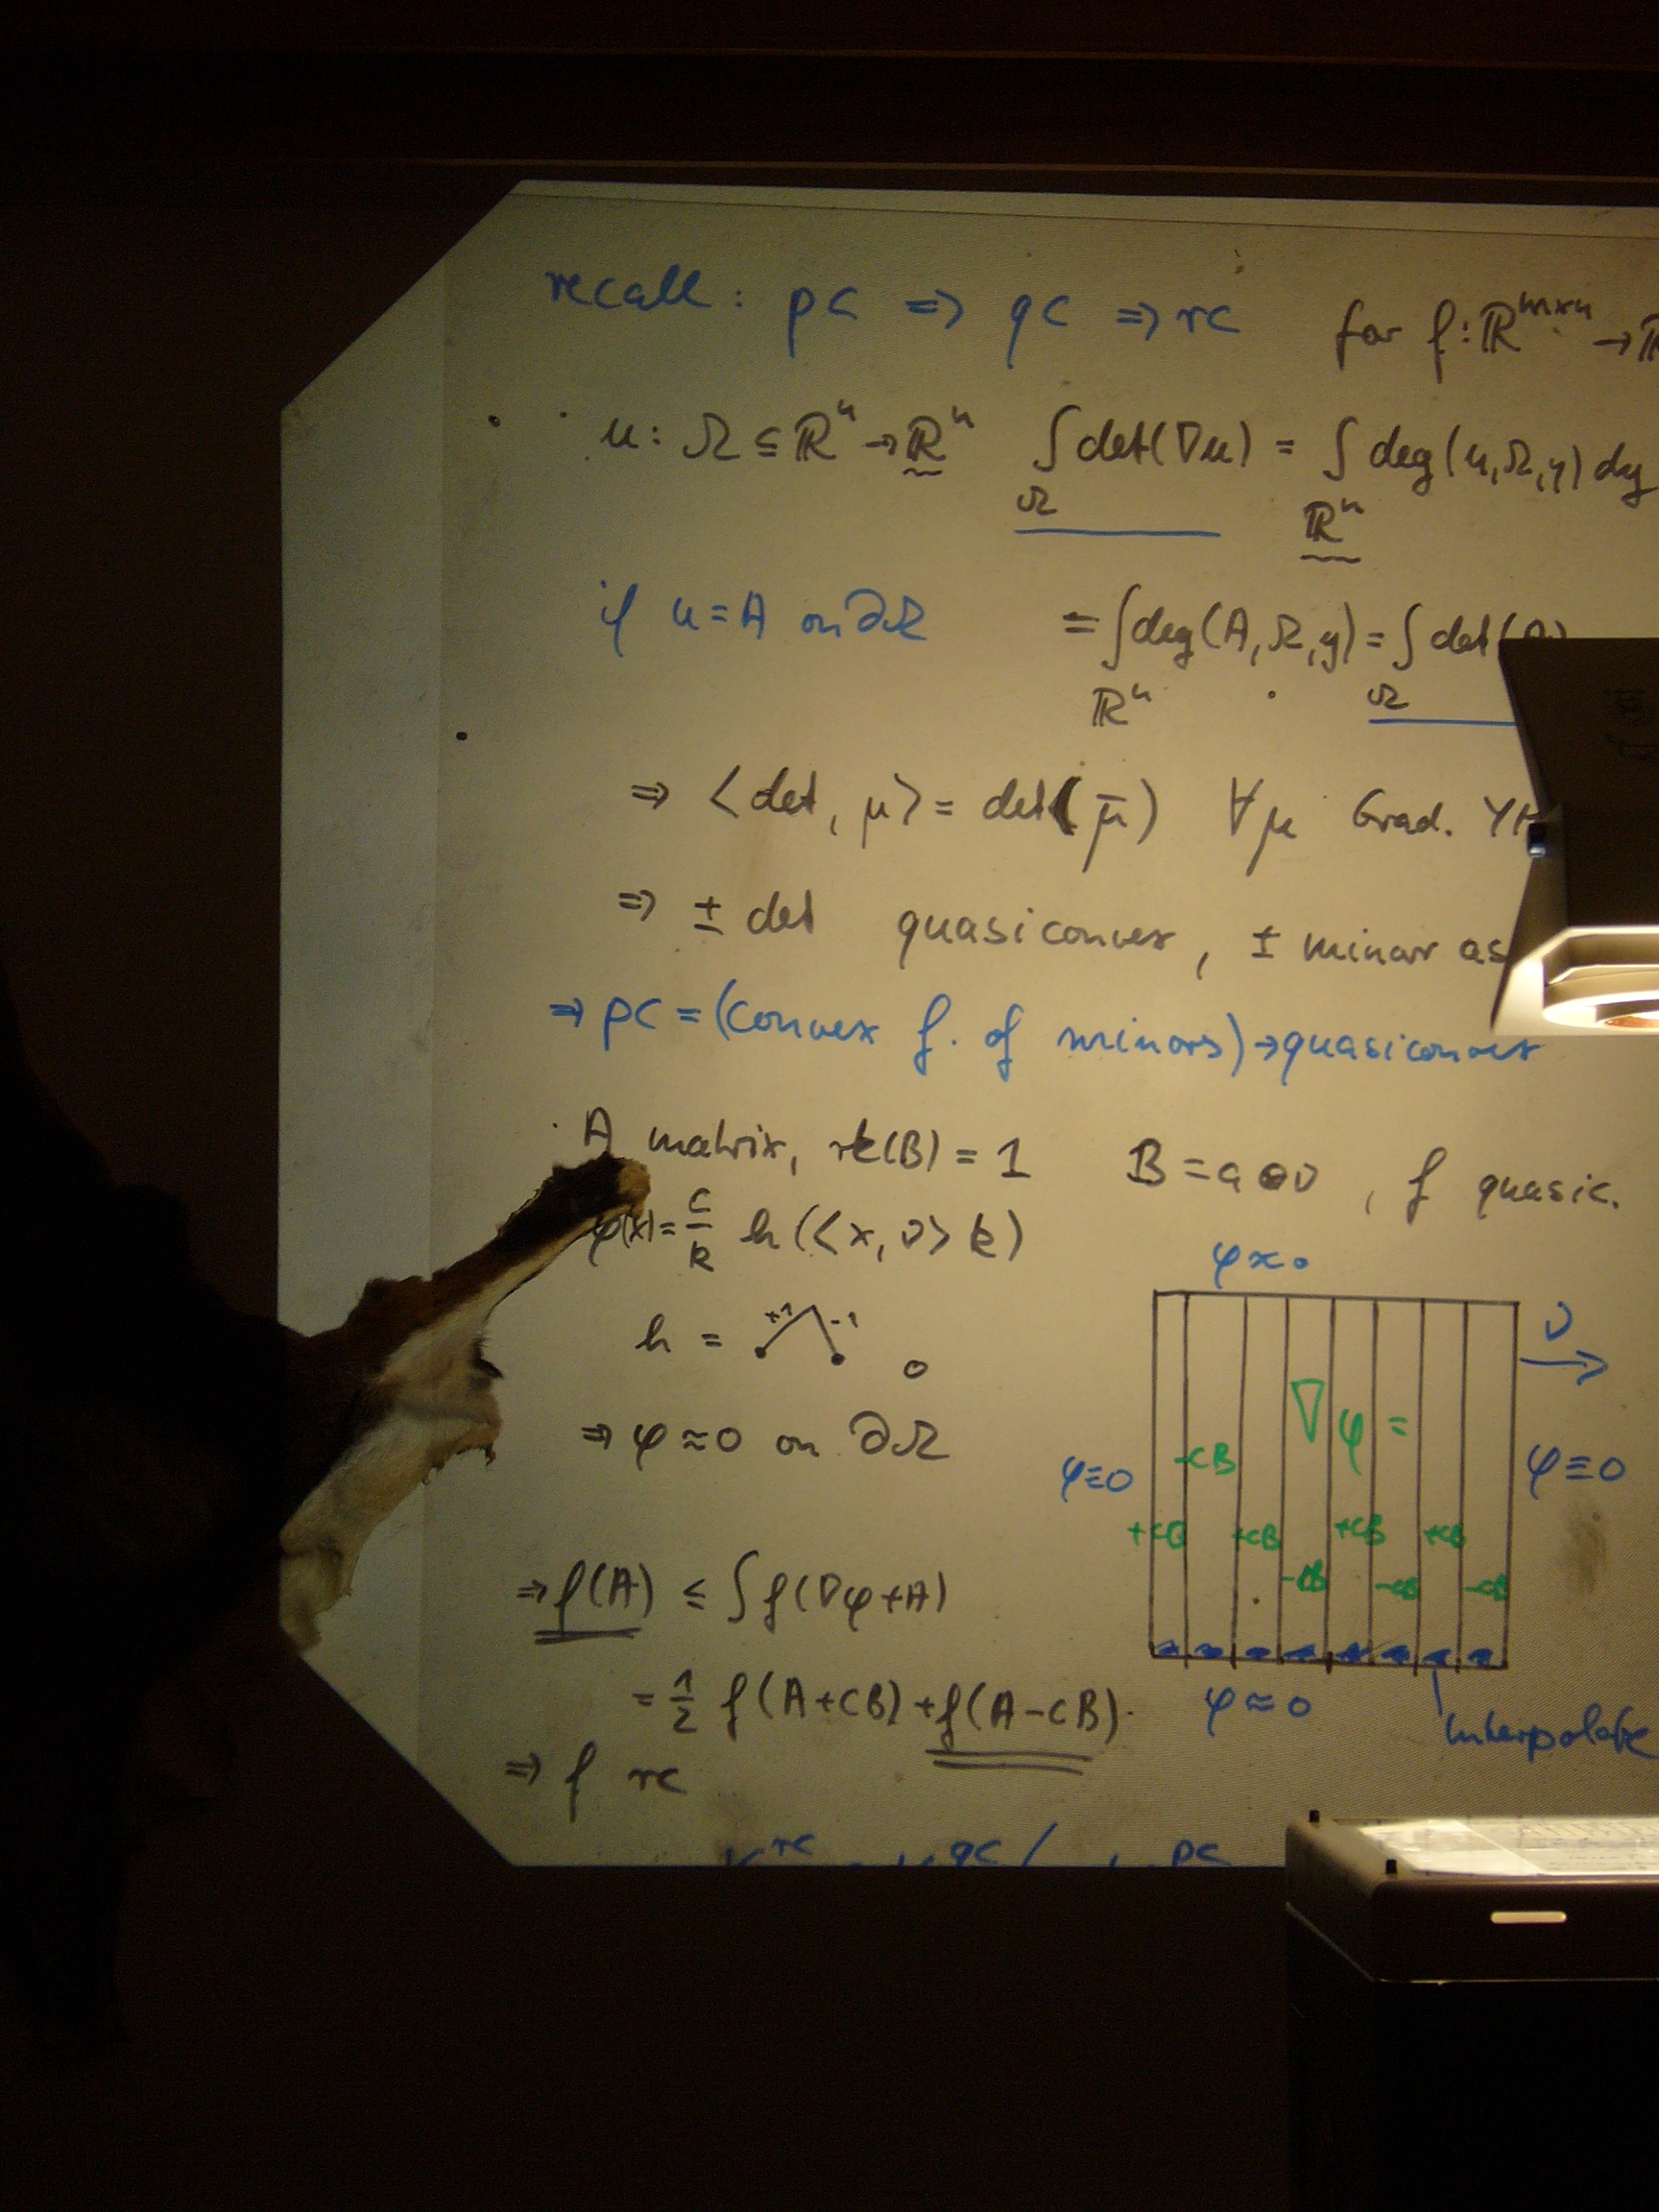 recall: pc ⇒ qc ⇒ rc for f: ℝ^{m×n} → ℝ
u: Ω ⊆ ℝⁿ → ℝⁿ ∫_Ω det(∇u) = ∫_{ℝⁿ} deg(u,Ω,y) dy
if u=A on ∂Ω = ∫_{ℝⁿ} deg(A,Ω,y) = ∫_Ω det(A)
⇒ <det, μ> = det(μ̄) ∀μ Grad. YM
⇒ ± det quasiconvex, ± minor as
⇒ pc = (convex f. of minors) → quasiconvex
A matrix, rk(B) = 1 B = a⊗ν, f quasic.
φ(x) = c/k h(<x,ν>k)
φ≈0
h = +1 -1
ν
⇒ φ≈0 on ∂Ω
∇φ =
φ≡0 -cB φ≡0
+cB +cB +cB +cB
-cB -cB -cB
⇒ f(A) ≤ ∫f(∇φ+A)
= ½ f(A+cB) + f(A-cB).
φ≈0 interpolate
⇒ f rc